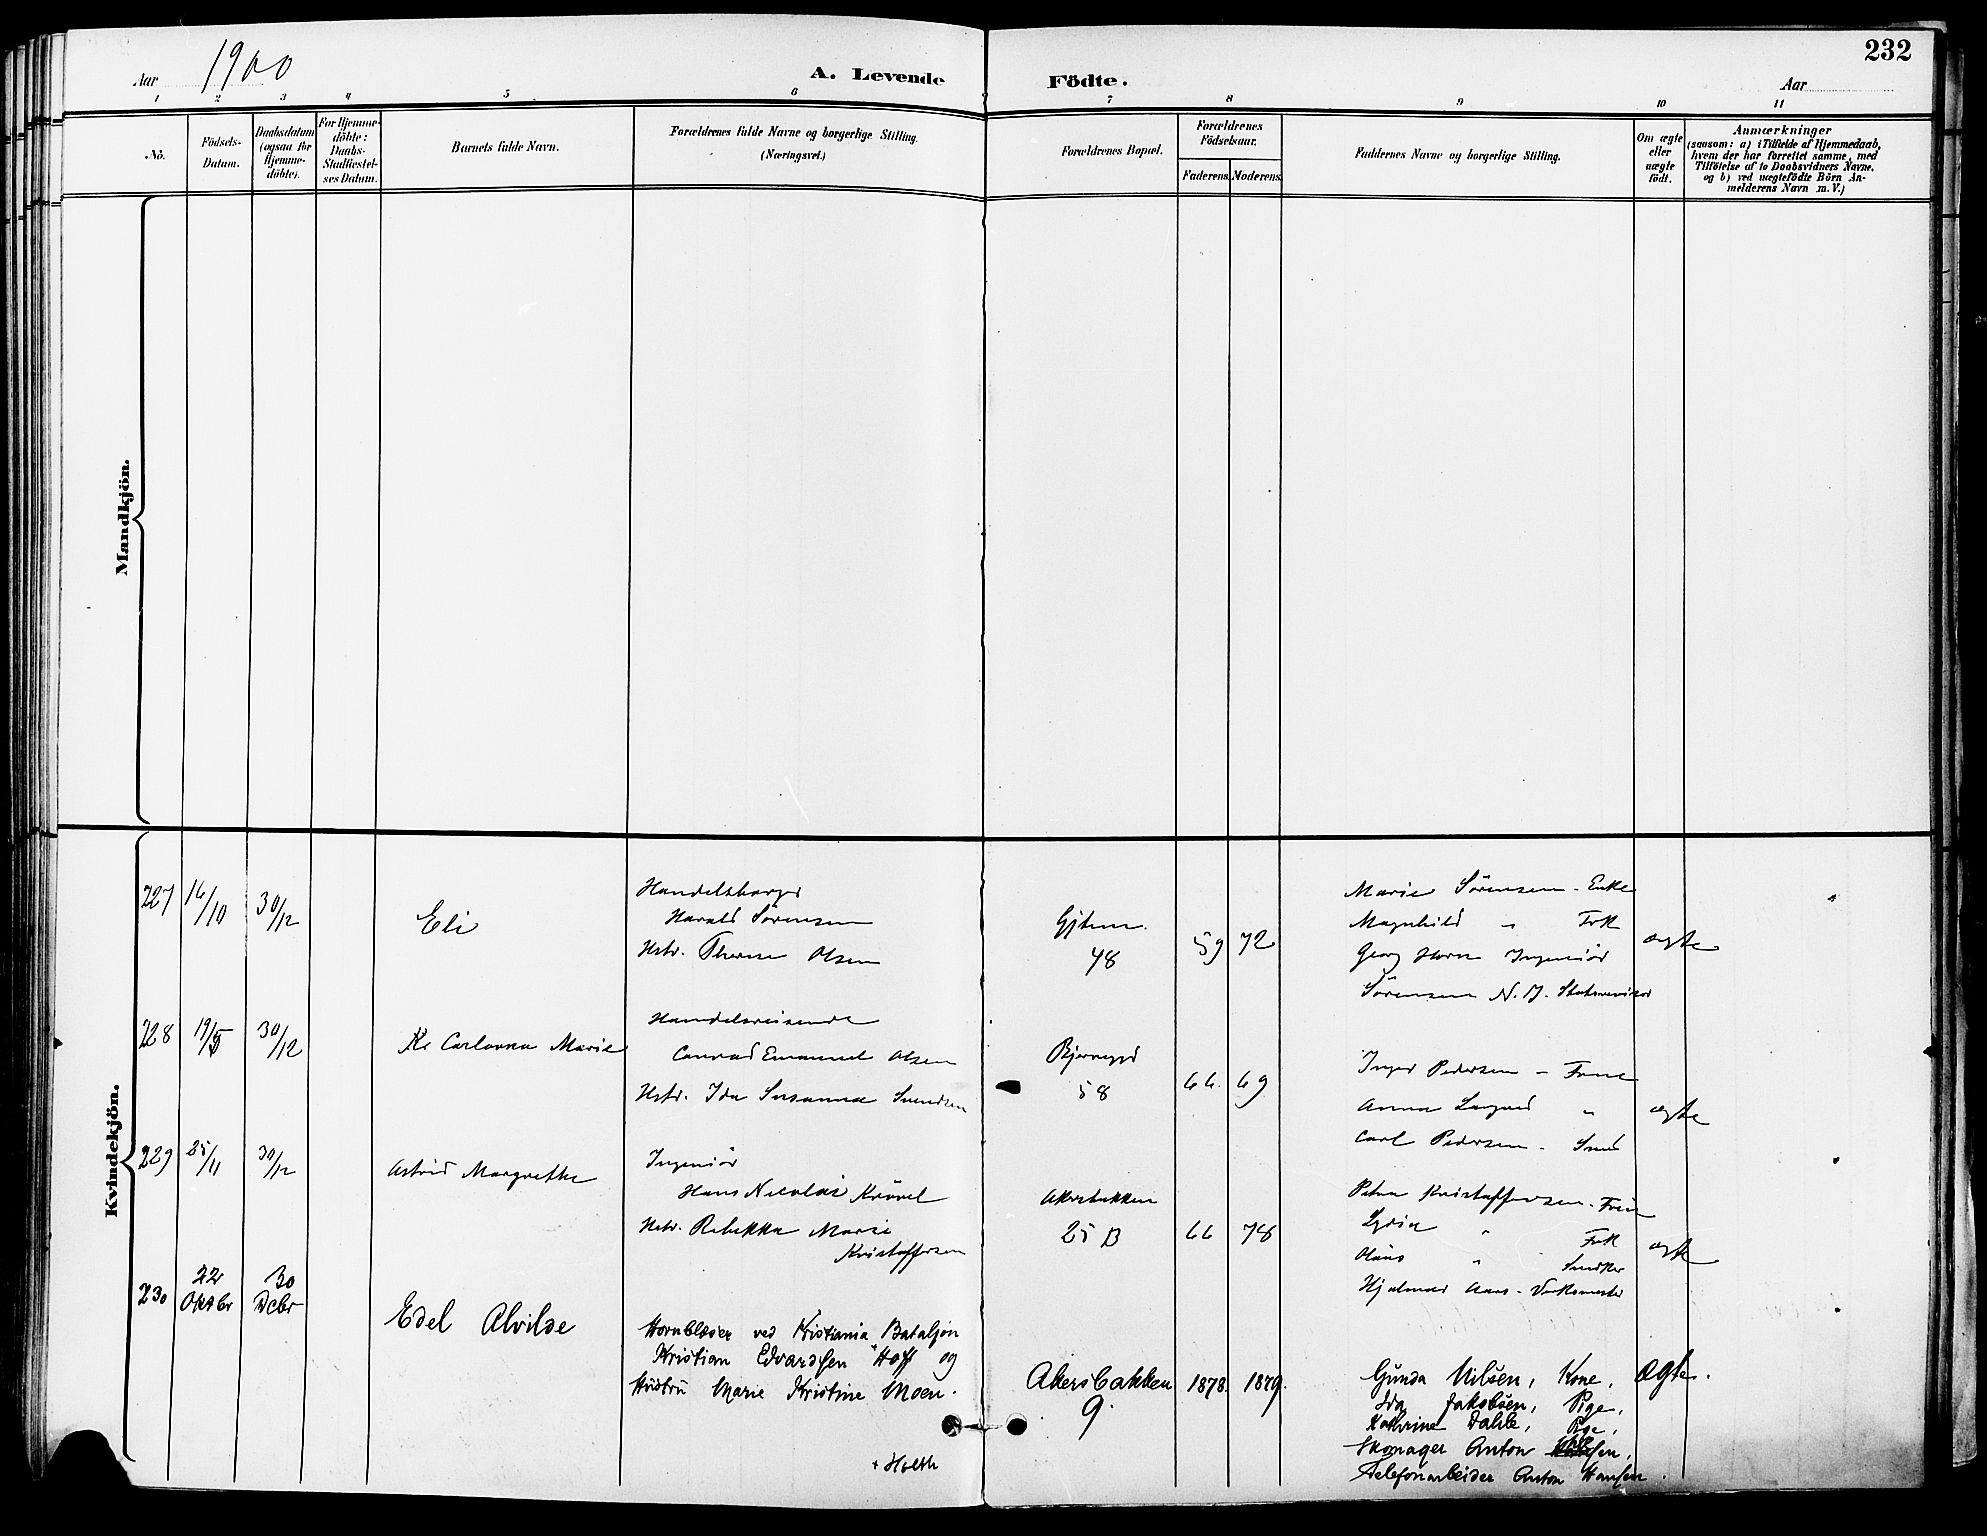 232
Aar 1900
A. Levende Födte.
Aar
1 2 3 4 5 6 7 8 9 10 11
No.
Födsels-
Datum.
Daabsdatum
(ogsaa for
Hjemme-
döbte).
For Hjemme-
döbte:
Daabs-
Stadfæstel-
ses Datum.
Barnets fulde Navn.
Forældrenes fulde Navne og borgerlige Stilling.
(Næringsvei.)
Forældrenes Bopæl.
Forældrenes
Födselsaar.
Faderens. Moderens.
Faddernes Navne og borgerlige Stilling.
Om ægte
eller
uægte
födt.
Anmærkninger
(saasom: a) i Tilfælde af Hjemmedaab,
hvem der har forrettet samme, med
Tilföielse af to Daabsvidners Navne.
og b) ved uægtefödte Börn An-
melderens Navn m. V.)
Mandkjön.
Kvindekjön.
227 16/10 30/12
Eli
Harald Sørensen
Hstr. Therese Olsen
48
59 72
Marie Sörensen - Enke
Magnhild " Frk
Georg Horn Ingeniör
Sörensen N. J. Statsrevisor
ægte
228 19/5 30/12
Carlovna Marie
Handelsreisende
Conrad Emanuel Olsen
Hstr. Ida Susanna Svendsen
58
66. 69
Inger Pedersen - Frue
Anna "
Carl Pedersen - Smed
ægte
229 25/11 30/12
Astrid Margrethe
Ingeniör
Hans Nicolai Krövel
Hstr. Rebekka Marie
Kristoffersen
Akersbakken
25 B
66 78
Petra Kristoffersen - Frue
Lydia " Frk
Hans " Snedker
Hjalmar Aars - Verksmester
ægte
230 22 Oktbr 30 Dcbr
Edel Alvilde
Hornblæser ved Kristiania Bataljon
Kristian Edvardsen + Hoff og
Hüstrü Marie Kristine Moen.
+ Holth
Akersbakken
9.
1878. 1879.
Gunda Nilsen, Kone.
Ida Jakobsen, Pige,
Kathrine Dahle, Pige,
Skomager Anton
Telefonarbeider Anton Hansen.
ægte.